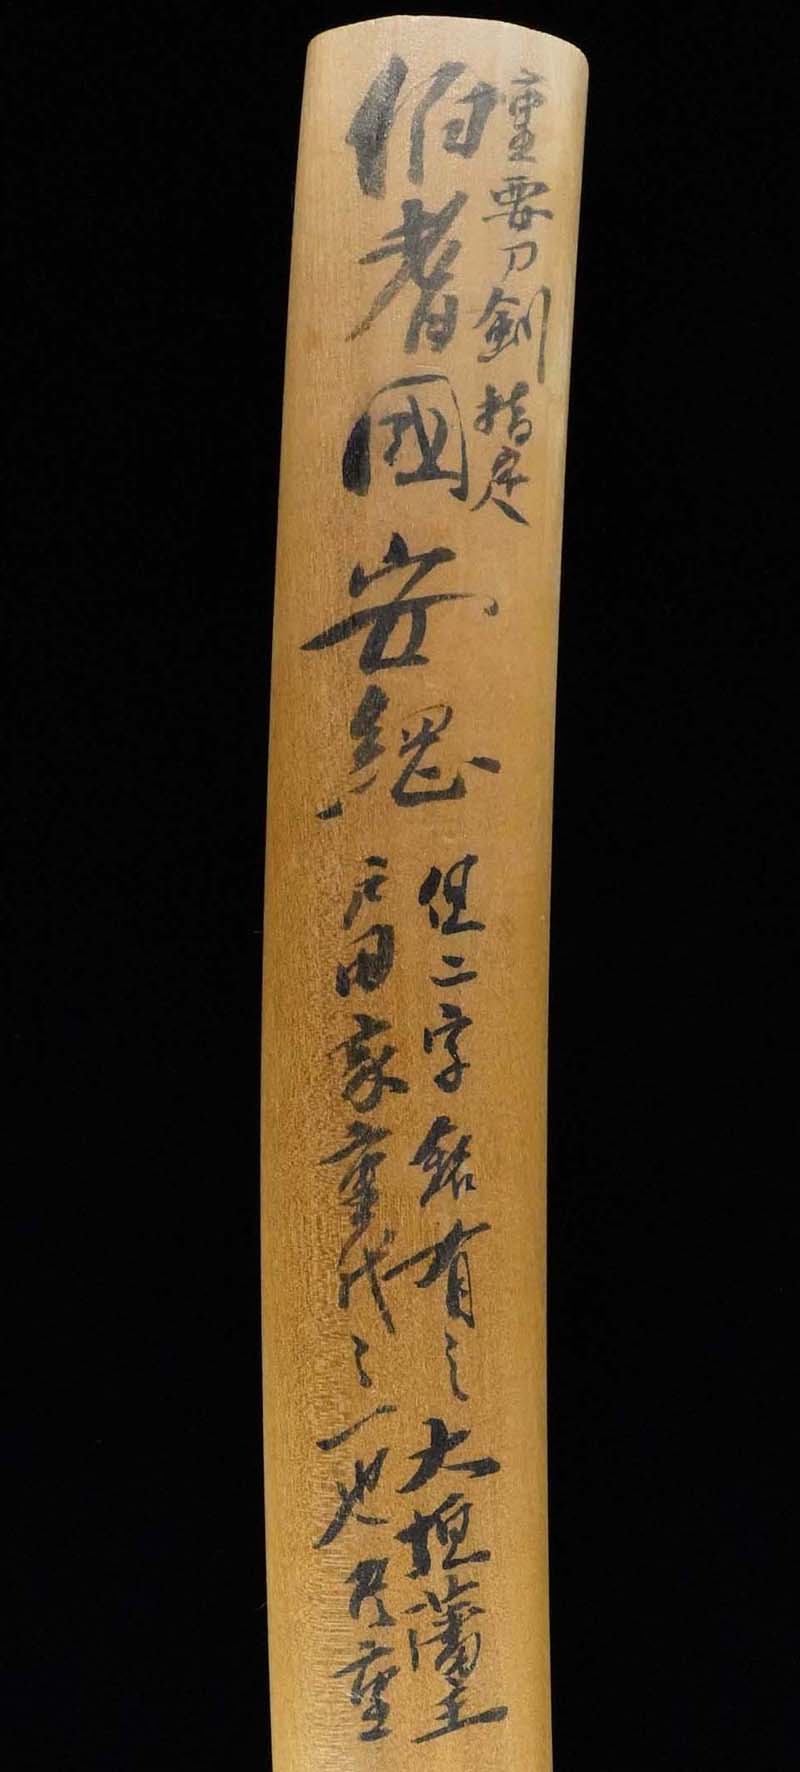 重要刀剣指定
伯耆國安綱
但二字銘有之大垣藩主
戸田家重代之一也珍重